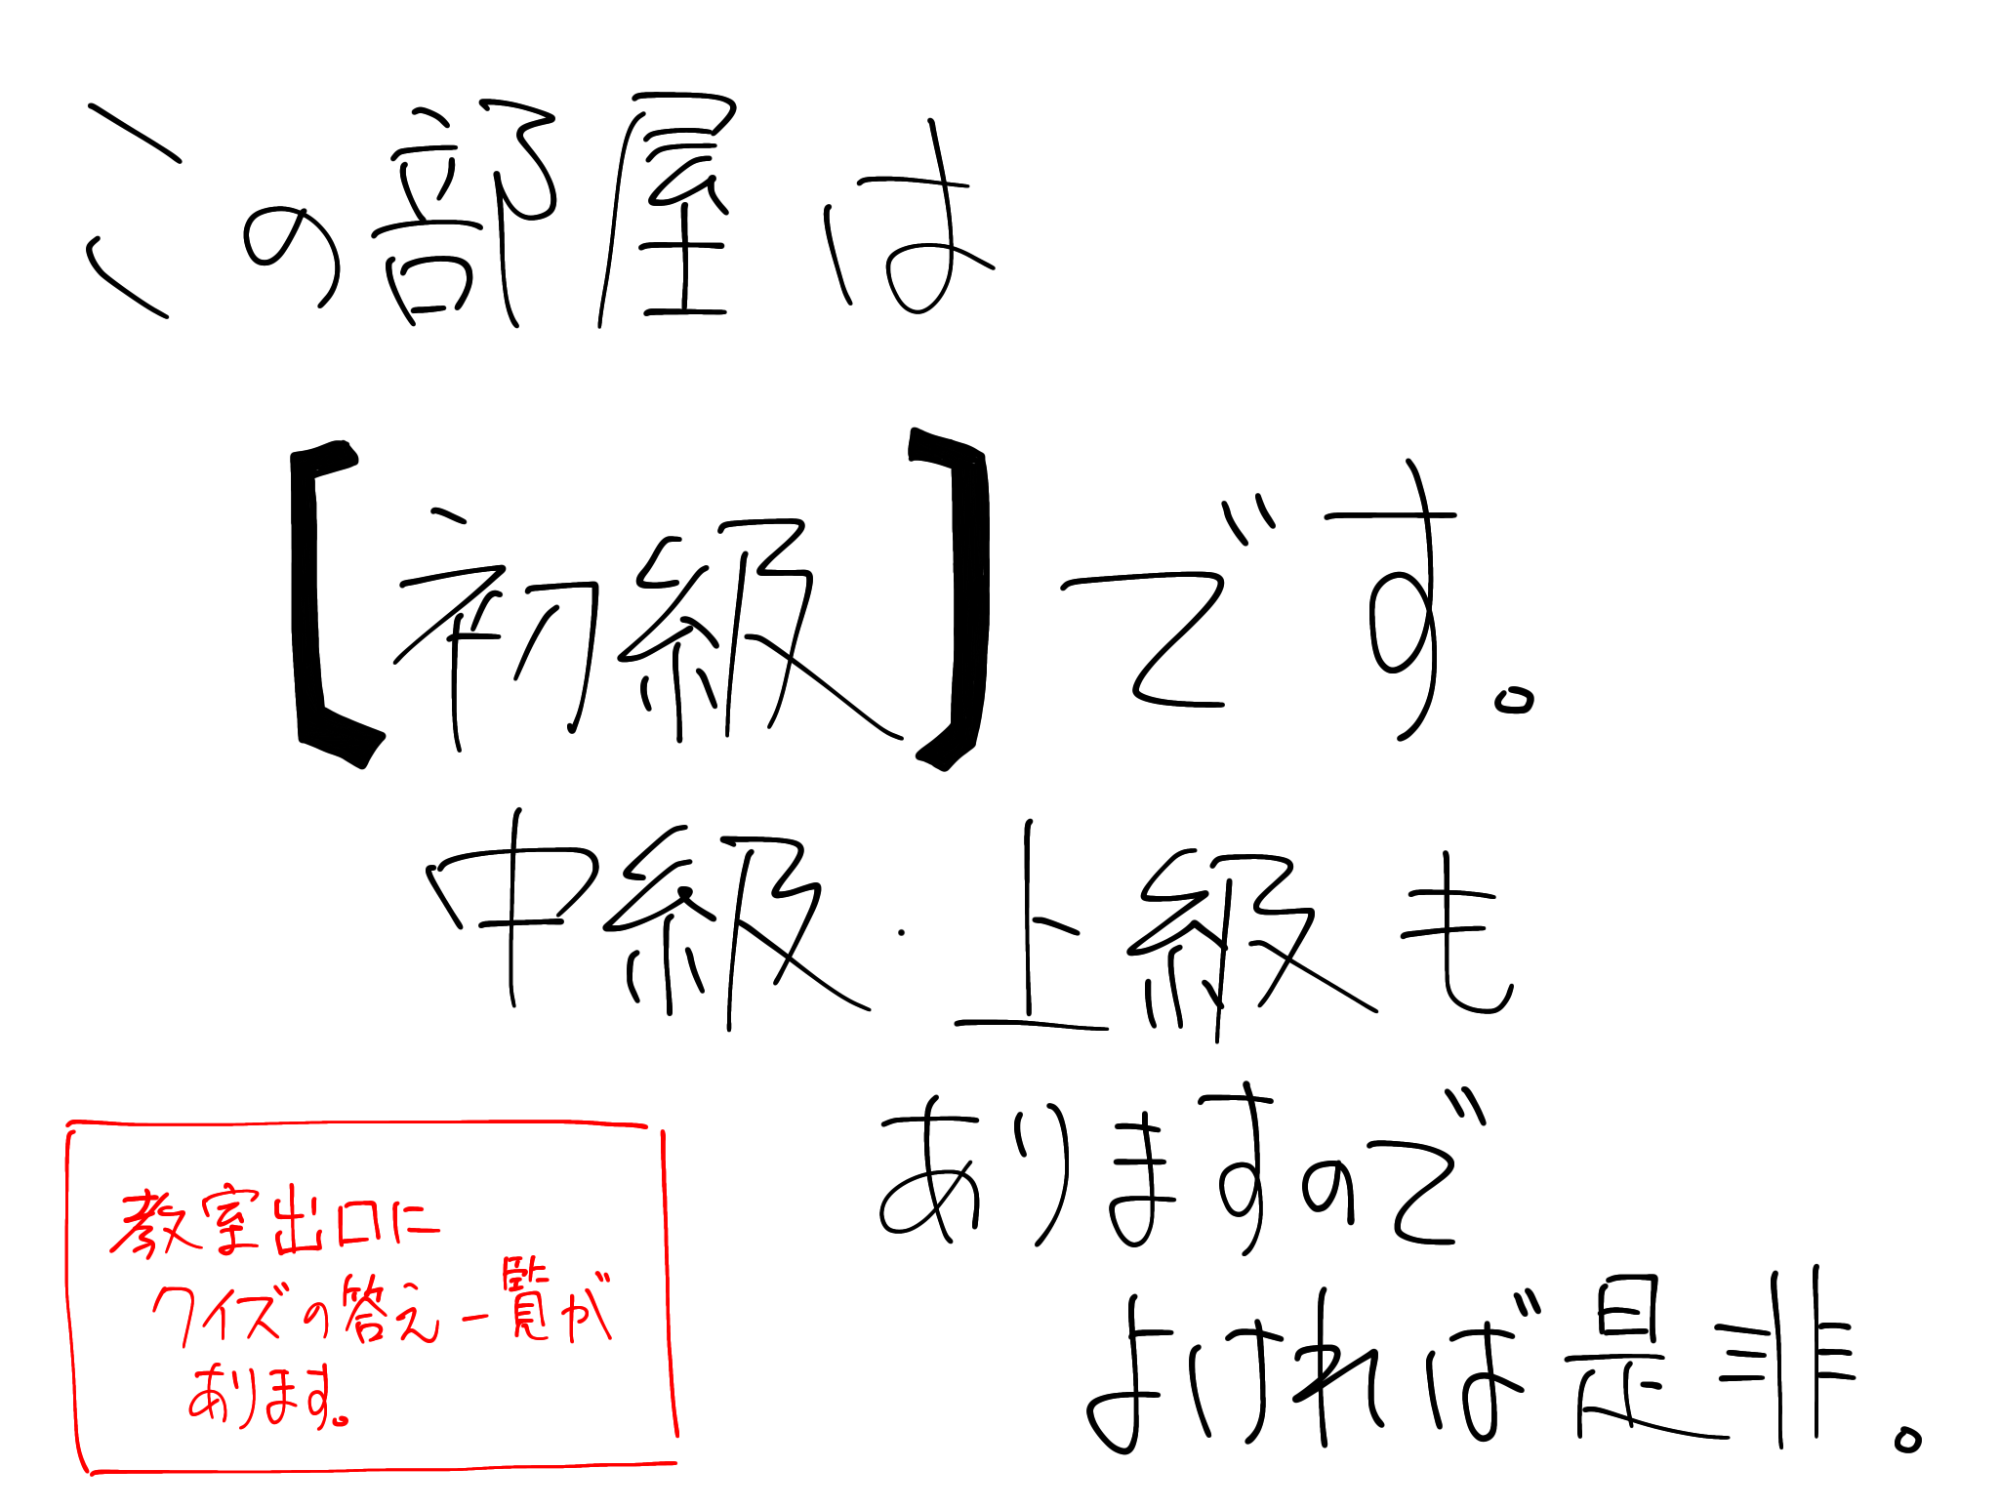 この部屋は
[初級]です。
中級・上級も
ありますので
よければ是非。
教室出口に
クイズの答え一覧が
あります。